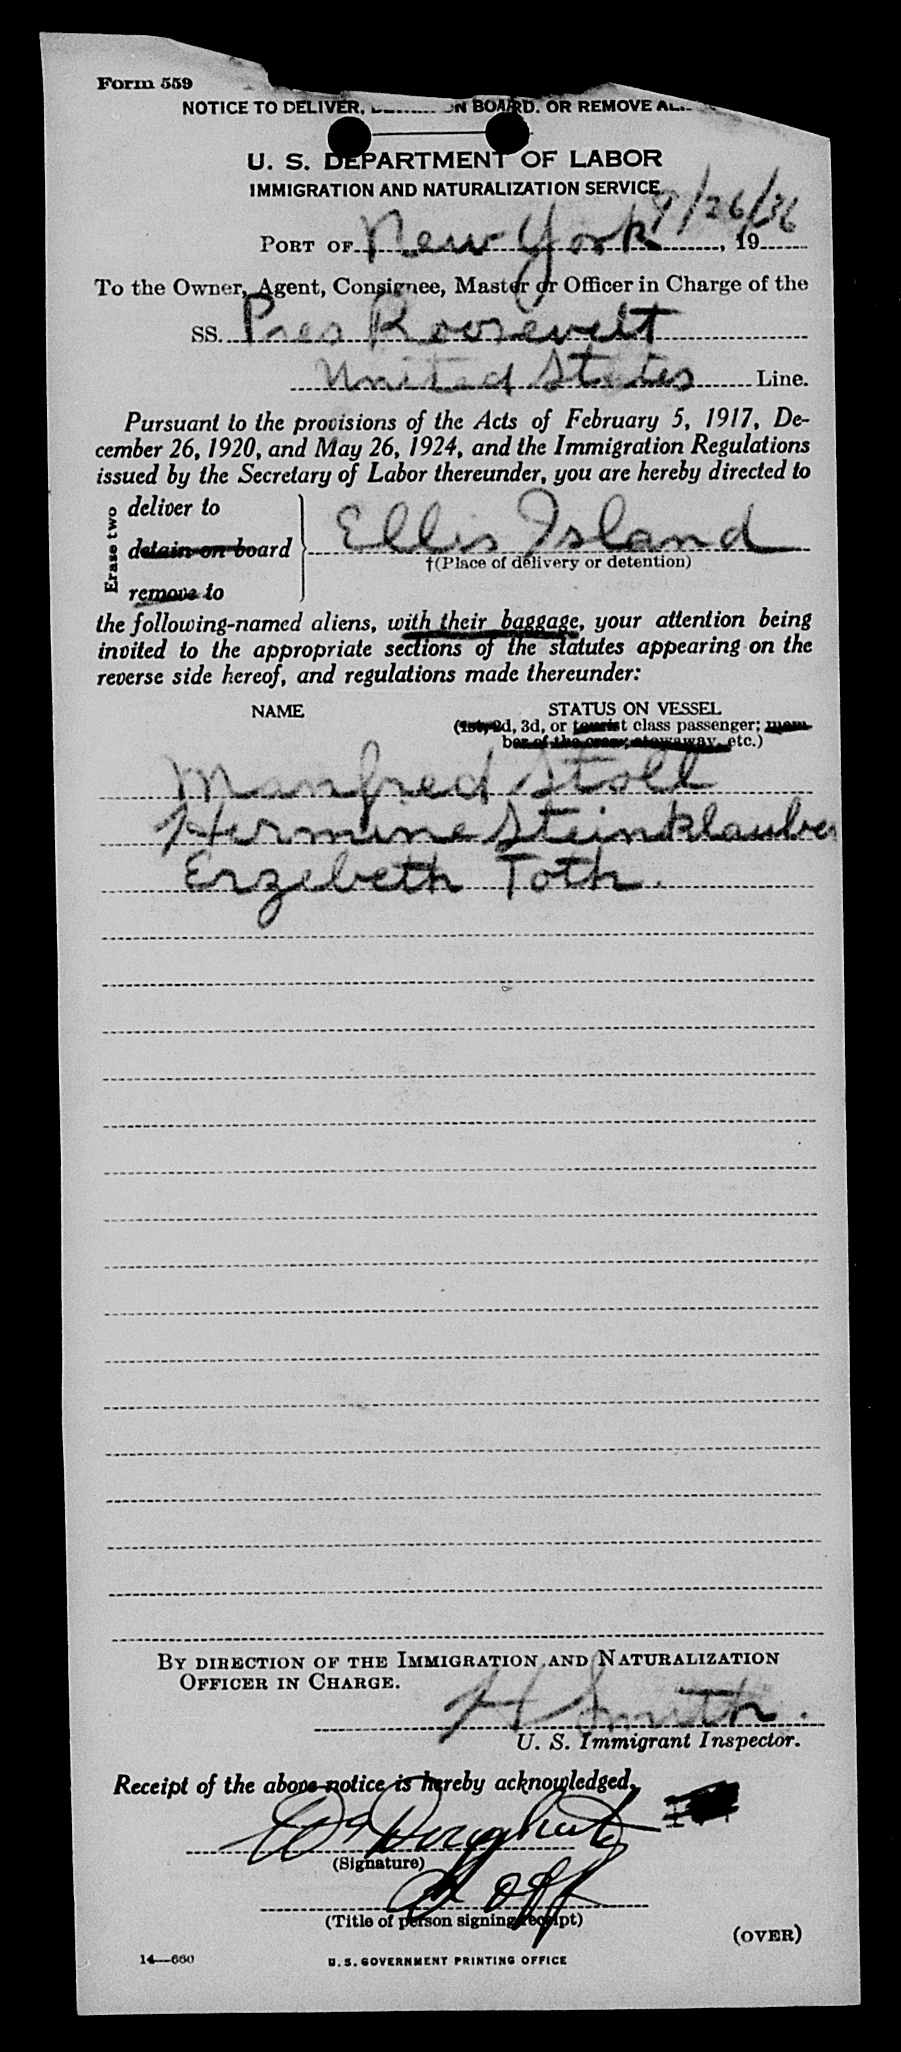 Form 559
NOTICE TO DELIVER, ON BOARD, OR REMOVE
U. S. DEPARTMENT OF LABOR
IMMIGRATION AND NATURALIZATION SERVICE
9/26/36
PORT OF New York, 19
To the Owner, Agent, Consignee, Master or Officer in Charge of the
SS. Pres Roosevelt
United States Line.
Pursuant to the provisions of the Acts of February 5, 1917, De-
cember 26, 1920, and May 26, 1924, and the Immigration Regulations
issued by the Secretary of Labor thereunder, you are hereby directed to
Erase two
deliver to
detain on board
remove to
Ellis Island
†(Place of delivery or detention)
the following-named aliens, with their baggage, your attention being
invited to the appropriate sections of the statutes appearing on the
reverse side hereof, and regulations made thereunder:
NAME STATUS ON VESSEL
(1st, 2d, 3d, or tourist class passenger; mem-
ber of the crew, stowaway, etc.)
Manfred Stoll
Hermine Steinklauber
Erzebeth Toth.
BY DIRECTION OF THE IMMIGRATION AND NATURALIZATION
OFFICER IN CHARGE.
H Smith.
U. S. Immigrant Inspector.
Receipt of the above notice is hereby acknowledged.
(Signature)
Off
(Title of person signing receipt)
(OVER)
14—660 U. S. GOVERNMENT PRINTING OFFICE